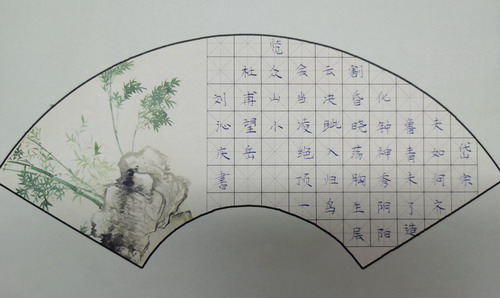 岱宗
夫如何齐
鲁青未了造
化钟神秀阴阳
割昏晓荡胸生层
云决眦入归鸟
会当凌绝顶一
览众山小
社甫望岳
刘沁庆書